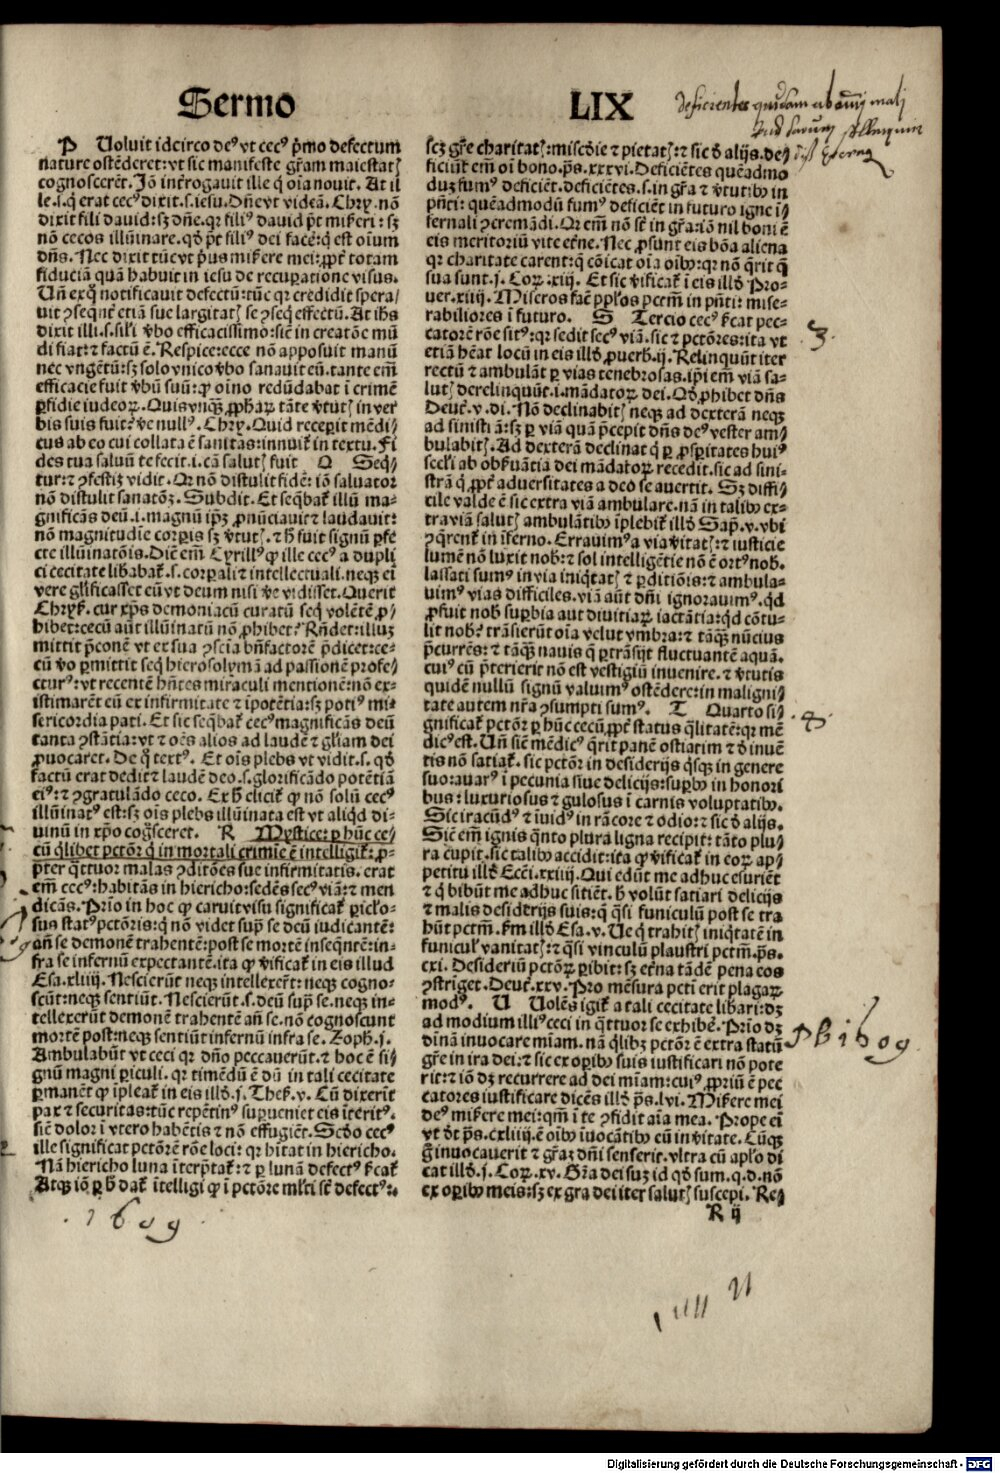 Sermo
LIX
P Uoluit idcirco deꝰ vt cecꝰ p̄mo defectum
nature ostēderet: vt sic manifeste gr̄am maiestatꝭ
cognosceret. Iō int̄rogauit ille q̇ oīa nouit. At il
le .s. q̇ erat cecꝰ dixit .s. iesu. Dn̄e vt videā. Chry. nō
dixit fili dauid: sꝫ dn̄e. qꝛ filiꝰ dauid pōt mis̄eri: sꝫ
nō cecos illūinare. qd̓ pōt filiꝰ dei facē: q̇ est oīum
dn̄s. Nec dixit tūc vt pꝰus mis̄ere mei: ꝓpt̄ totam
fiduciā quā habuit in iesu de recuꝑatione visus.
Uñ exq̇ notificauit defectū: tūc qꝛ credidit spera/
uit ꝯseqn̄t etiā sue largitatꝭ se ꝯseq̇ effectū. At ih̄s
dixit illi .s. sili v̓bo efficacissimo: sic̄ in creatōe mū
di fiat: ⁊ factū ē. Respice: ecce nō apposuit manū
nec vngētū: sꝫ solo vnico v̓bo sanauit eū. tante em̄
efficacie fuit v̓bū suū: ꝙ oīno redūdabat ī crimē
ꝑfidie iudeoꝝ. Quis vnꝗꝫ ꝓphaꝝ tāte v̓tutꝭ in ver
bis suis fuit? v̓e nullꝰ. Chry. Quid recepit mēdi/
cus ab eo cui collata ē sanitas: innuit̄ in textu. Fi
des tua saluū te fecit .i. cā salutꝭ fuit Q Seqͥ/
tur: ⁊ ꝯfestiꝫ vidit. Qꝛ nō distulit fidē: iō saluator
nō distulit sanatōꝫ. Subdit. Et seq̄bat̄ illū ma-
gnificās deū .i. magnū ip̄ꝫ ꝓnūciauit ⁊ laudauit:
nō magnitudīe corꝑis sꝫ v̓tutꝭ. ⁊ h̓ fuit signū ꝑfe
cte illūinatōis. Dic̄ em̄ Cyrillꝰ ꝙ ille cecꝰ a dupli
ci cecitate lib̓abat̄ .s. corꝑali ⁊ intellectuali. neqꝫ ei
vere glīficasset eū vt deum nisi v̓e vidisset. Querit
Chryſ. cur xp̄s demoniacū curatū seq̇ volētē ꝓ/
hibet: cecū aūt illūinatū nō ꝓhibet? Rn̄det: illuꝫ
mittit p̄conē vt ex sua ꝯsciā bn̄factorē p̄dicet: ce-
cū v̓o ꝑmittit seq̇ hierosolymā ad passionē profe-
cturꝰ: vt recentē hn̄tes mīraculi mentionē: nō ex-
istimarēt eū ex infirmitate ⁊ īpotētia: sꝫ potiꝰ mi-
sericordia pati. Et sic seq̄bat̄ cecꝰ magnificās deū
tanta ꝯstātia: vt ⁊ oēs alios ad laudē ⁊ gl̄iam dei
ꝓuocaret. De q̇ textꝰ. Et oīs plebs vt vidit .s. qd̓
factū erat dedit ⁊ laudē deo .s. glorificādo potētiā
eiꝰ: ⁊ ꝯgratulādo ceco. Ex h̓ elicit̄ ꝙ nō solū cecꝰ
illūinatꝰ est: sꝫ oīs plebs illūinata est vt aliqd̓ di-
uinū in xp̄o cogͦsceret. R Mystice: ꝑ hūc ce/
cū q̄libet pctōr q̇ in mortali crimīe ē intelligit̄: ꝓ-
pter q̄ttuor malas ꝯditōes sue infirmitatis. erat
em̄ cecꝰ: habitās in hiericho: sedēs secꝰ viā: ⁊ men
dicās. Prīo in hoc ꝙ caruit visu significat̄ ꝑiclo-
sus statꝰ pctōris: q̇ nō videt sup̄ se deū iudicātē:
añ se demonē trahentē: post se mortē inseqn̄tē: in-
fra se infernū expectantē. ita ꝙ v̓ificat̄ in eis illud
Esa. xliiij. Nescierūt neqꝫ intellexer̄t: neqꝫ cogno-
scūt: neqꝫ sentiūt. Nescierūt .s. deū sup̄ se. neqꝫ in-
tellexerūt demonē trahentē añ se. nō cognoscunt
mortē post: neqꝫ sentiūt infernū infra se. Zoph. j.
Ambulabūt vt ceci qꝛ dn̄o peccauerūt. ⁊ hoc ē si/
gnū magni ꝑiculi. qꝛ timēdū ē dū in tali cecitate
ꝑmanēt ꝙ īpleat̄ in eis illd̓ .j. Thes̄. v. Cū dixerīt
pax ⁊ securitas: tūc repētinꝰ suꝑueniet eis īteritꝰ.
sic̄ dolor ī vtero habētis ⁊ nō effugiēt. Scd̓o cecꝰ
ille significat pctōrē rōe loci: qꝛ hītat in hiericho.
Nā hiericho luna īterp̄tat̄: ⁊ ꝑ lunā defectꝰ s̄cat̄
Atqꝫ iō ꝑ h̓ dat̄ ītelligi ꝙ ī pctōre ml̄ti sūt defectꝰ:
scꝫ gr̄e charitatꝭ: miscd̓ie ⁊ pietatꝭ: ⁊ sic d̓ alijs. de/
ficiūt em̄ oī bono. p̄s. xxxvi. Deficiētes quēadmo
duꝫ fumꝰ deficiēt. deficiētes .s. in gr̄a ⁊ v̓tutibꝰ in
pn̄ti: quēadmodū fumꝰ deficiēt in futuro igne ī/
fernali ꝯcremādi. Qꝛ em̄ nō sūt in gr̄a: iō nil boni ē
eis meritoriū vite et̄ne. Nec ꝓsunt eis bōa aliena
qꝛ charitate carent: q̄ cōicat oīa oībꝰ: qꝛ nō q̄rit q̄
sua sunt. j. Coꝝ. xiij. Et sic v̓ificat̄ ī eis illd̓ Pro-
uer. xiiij. Miseros facͥt ppl̓os pctm̄ in pn̄ti: mise-
rabiliores ī futuro. S Tercio cecꝰ s̄cat pec-
catorē rōe sitꝰ: qꝛ sedit secꝰ viā. sic ⁊ pctōres: ita vt
etiā hēat locū in eis illd̓ ꝓuerb̄. ij. Relinquūt iter
rectū ⁊ ambulāt ꝑ vias tenebrosas. ip̄i em̄ viā sa-
lutꝭ derelinquūt .i. mādatoꝝ dei. Qd̓ ꝓhibet dn̄s
Deut̄. v. di. Nō declinabitꝭ neqꝫ ad dexterā neqꝫ
ad sinistrā: sꝫ ꝑ viā quā p̄cepit dn̄s deꝰ vester am-
bulabitꝭ. Ad dexterā declinat q̇ ꝑ ꝓsperitates huiꝰ
secl̓i ab obs̄uātia dei mādatoꝝ recedit. sic ad sini-
strā q̇ ꝓpt̄ aduersitates a deo se auertit. Sꝫ diffi-
cile valde ē sic extra viā ambulare. nā in talibꝰ ex-
tra viā salutꝭ ambulātibꝰ īplebit̄ illd̓ Sap̄. v. vbi
ꝯq̄rent̄ in īferno. Errauimꝰ a via v̓itatꝭ: ⁊ iusticie
lumē nō luxit nobꝭ: ⁊ sol intelligētie nō ē ortꝰ nobꝭ.
lassati sumꝰ in via iniq̇tatꝭ ⁊ ꝑditiōis: ⁊ ambula-
uimꝰ vias difficiles. viā aūt dn̄i ignorauimꝰ. qd̓
ꝓfuit nobꝭ suꝑbia aut diuitiaꝝ iactātia: qd̓ cōtu-
lit nobꝭ? trāsierūt oīa velut vmbra: ⁊ tāꝗꝫ nūcius
p̄currēs: ⁊ tāꝗꝫ nauis q̄ ꝑtrāsijt fluctuantē aquā.
cuiꝰ cū p̄terierit nō est vestigiū inuenire. ⁊ v̓tutis
quidē nullū signū valuimꝰ ostēdere: in maligni/
tate autem nr̄a ꝯsumpti sumꝰ. T Quarto si/
gnificat̄ pctōr ꝑ hūc cecū ꝓpt̄ status q̄litatē: qꝛ mē
dicꝰ est. Uñ sic̄ mēdicꝰ q̄rit panē ostiatim ⁊ d̓ inuē
tis nō satiat̄. sic pctōr in desiderijs q̇sqꝫ in genere
suo: auarꝰ ī pecunia siue delicijs: suꝑbꝰ in honori
bus: luxuriosus ⁊ gulosus ī carnis voluptatibꝰ.
Sic iracūdꝰ ⁊ īuidꝰ in rācore ⁊ odio: ⁊ sic d̓ alijs.
Sic̄ em̄ ignis q̄nto plura ligna recipit: tāto plu/
ra cupit. sic talibꝰ accidit: ita ꝙ v̓ificat̄ in eoꝝ ap/
petitu illd̓ Ecc̄i. xxiiij. Qui edūt me adhuc esuriēt
⁊ q̇ bibūt me adhuc sitiēt. h̓ volūt satiari delicijs
⁊ malis desiderijs suis: q̇ q̄si funiculū post se tra
hūt pctm̄. s̄m illd̓ Esa. v. Ue q̇ trahitꝭ iniq̇tatē in
funiculꝭ vanitatꝭ: ⁊ q̄si vinculū plaustri pctm̄. p̄s.
cxi. Desideriū pctōꝝ ꝑibit: sꝫ et̄na tādē pena eos
ꝯstriget. Deut̄. xxv. Pro mēsura pcti erit plagaꝝ
modꝰ. U Uolēs igit̄ a tali cecitate lib̓ari: dꝫ
ad modium illiꝰ ceci in q̄ttuor se exhibē. Prīo dꝫ
diuīā inuocare miam. nā q̄libꝫ pctōr ē extra statū
gr̄e in ira dei: ⁊ sic ex oꝑibꝰ suis iustificari nō pote
rit: ⁊ iō dꝫ recurrere ad dei mīam: cuiꝰ ꝓpriū ē pec
catores iustificare dicēs illd̓ p̄s. lvi. Mis̄ere mei
deꝰ mis̄ere mei: qm̄ ī te ꝯfidit aīa mea. Prope ei
vt dt̄ p̄s. cxliiij. ē oībꝰ īuocātibꝰ eū in v̓itate. Cūqꝫ
q̇ inuocauerit ⁊ gr̄az dn̄i senserit. vltra cū apl̓o di
cat illd̓ .j. Coꝝ. xv. Gr̄a dei suꝫ id qd̓ sum. q. d. nō
ex oꝑibꝰ meis: sꝫ ex gra dei iter salutꝭ suscepi. Re/
R ij
3.
.4.
1609
.1609.
Digitalisierung gefördert durch die Deutsche Forschungsgemeinschaft - DFG